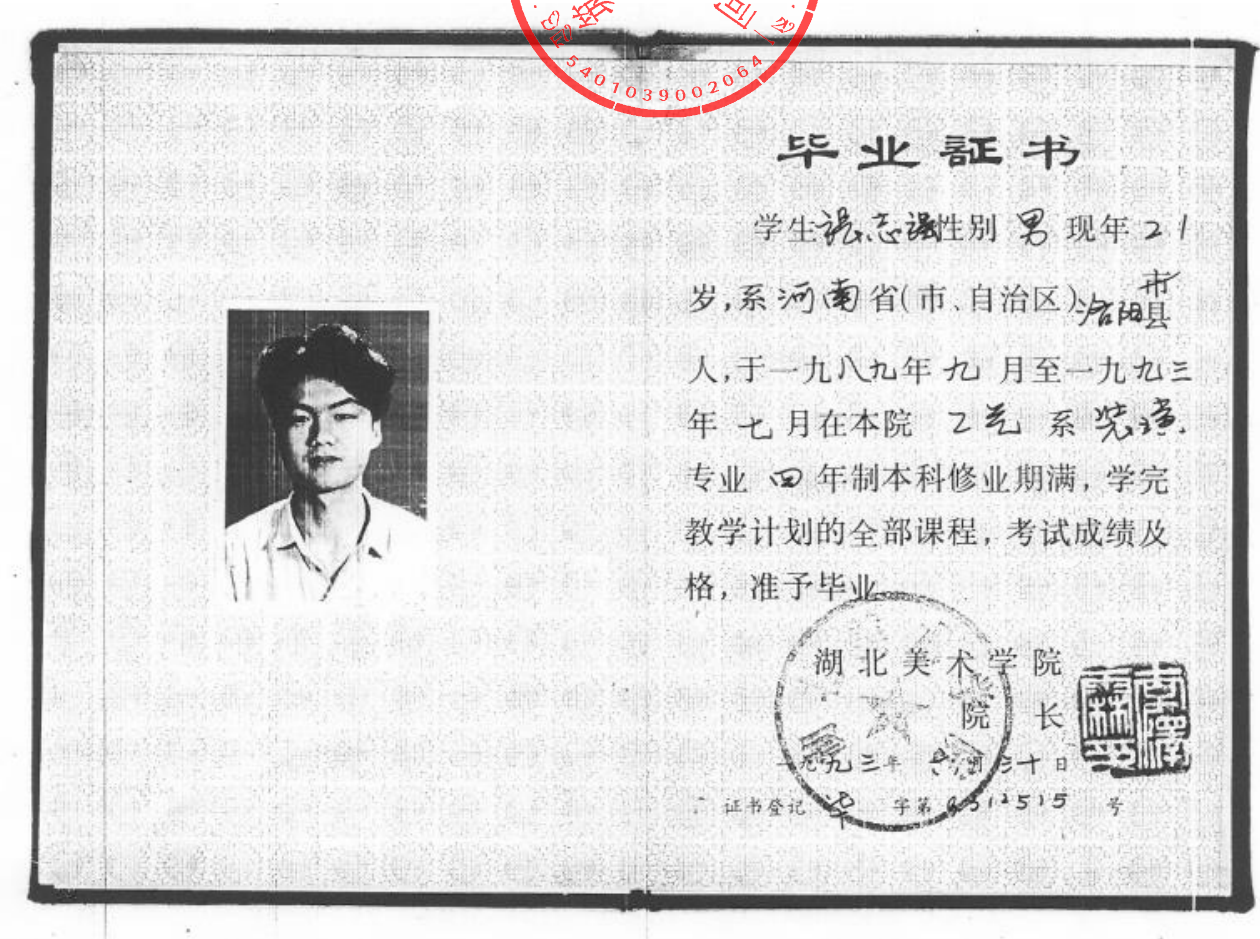 5401039002064
毕业証书
学生张志强性别 男 现年 21
岁,系河南省(市、自治区)洛阳市县
人,于一九八九年 九 月至一九九三
年 七 月在本院 工艺 系 装潢
专业 四 年制本科修业期满, 学完
教学计划的全部课程, 考试成绩及
格, 准予毕业
湖北美术学院
院 长
一九九三年 六 月三十日
证书登记 毕 字第 号